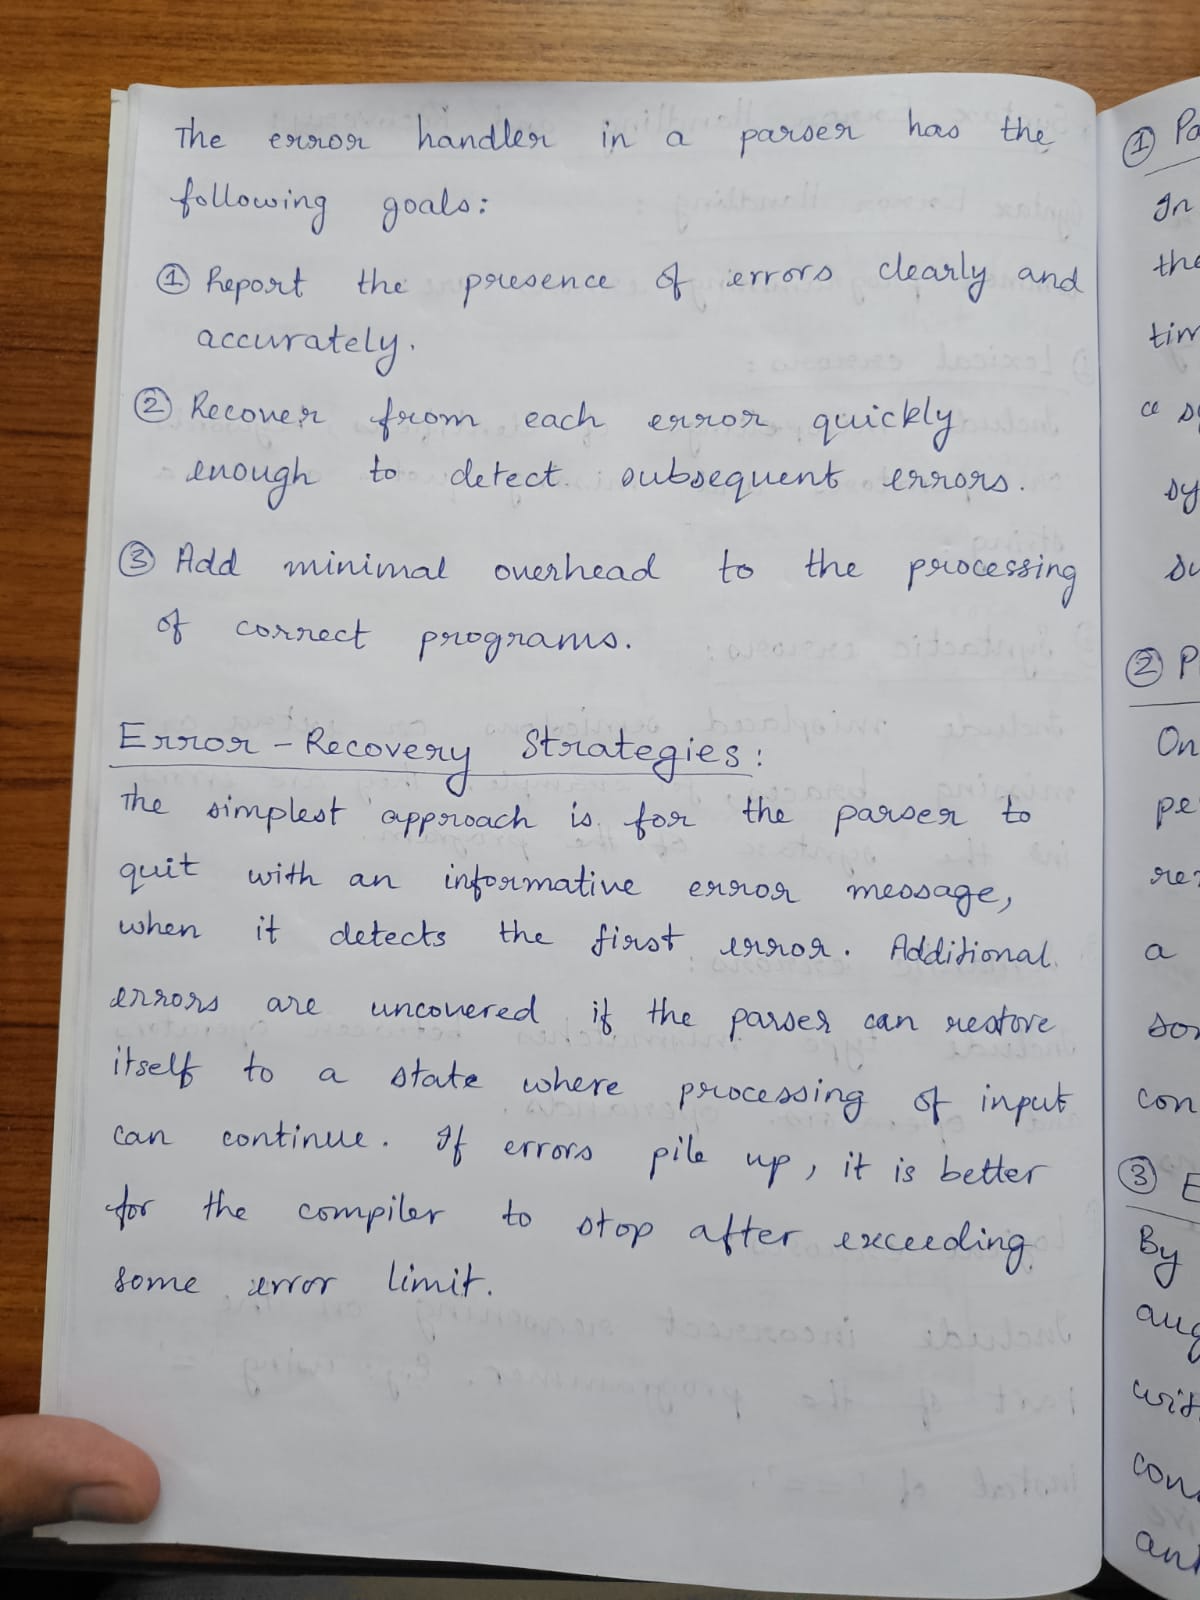 The error handler in a parser has the
following goals:
① Report the presence of errors clearly and
accurately.
② Recover from each error quickly
enough to detect subsequent errors.
③ Add minimal overhead to the processing
of correct programs.
Error - Recovery Strategies:
The simplest approach is for the parser to
quit with an informative error message,
when it detects the first error. Additional
errors are uncovered if the parser can restore
itself to a state where processing of input
can continue. If errors pile up, it is better
for the compiler to stop after exceeding
some error limit.
①
In
②
On
a
③
By